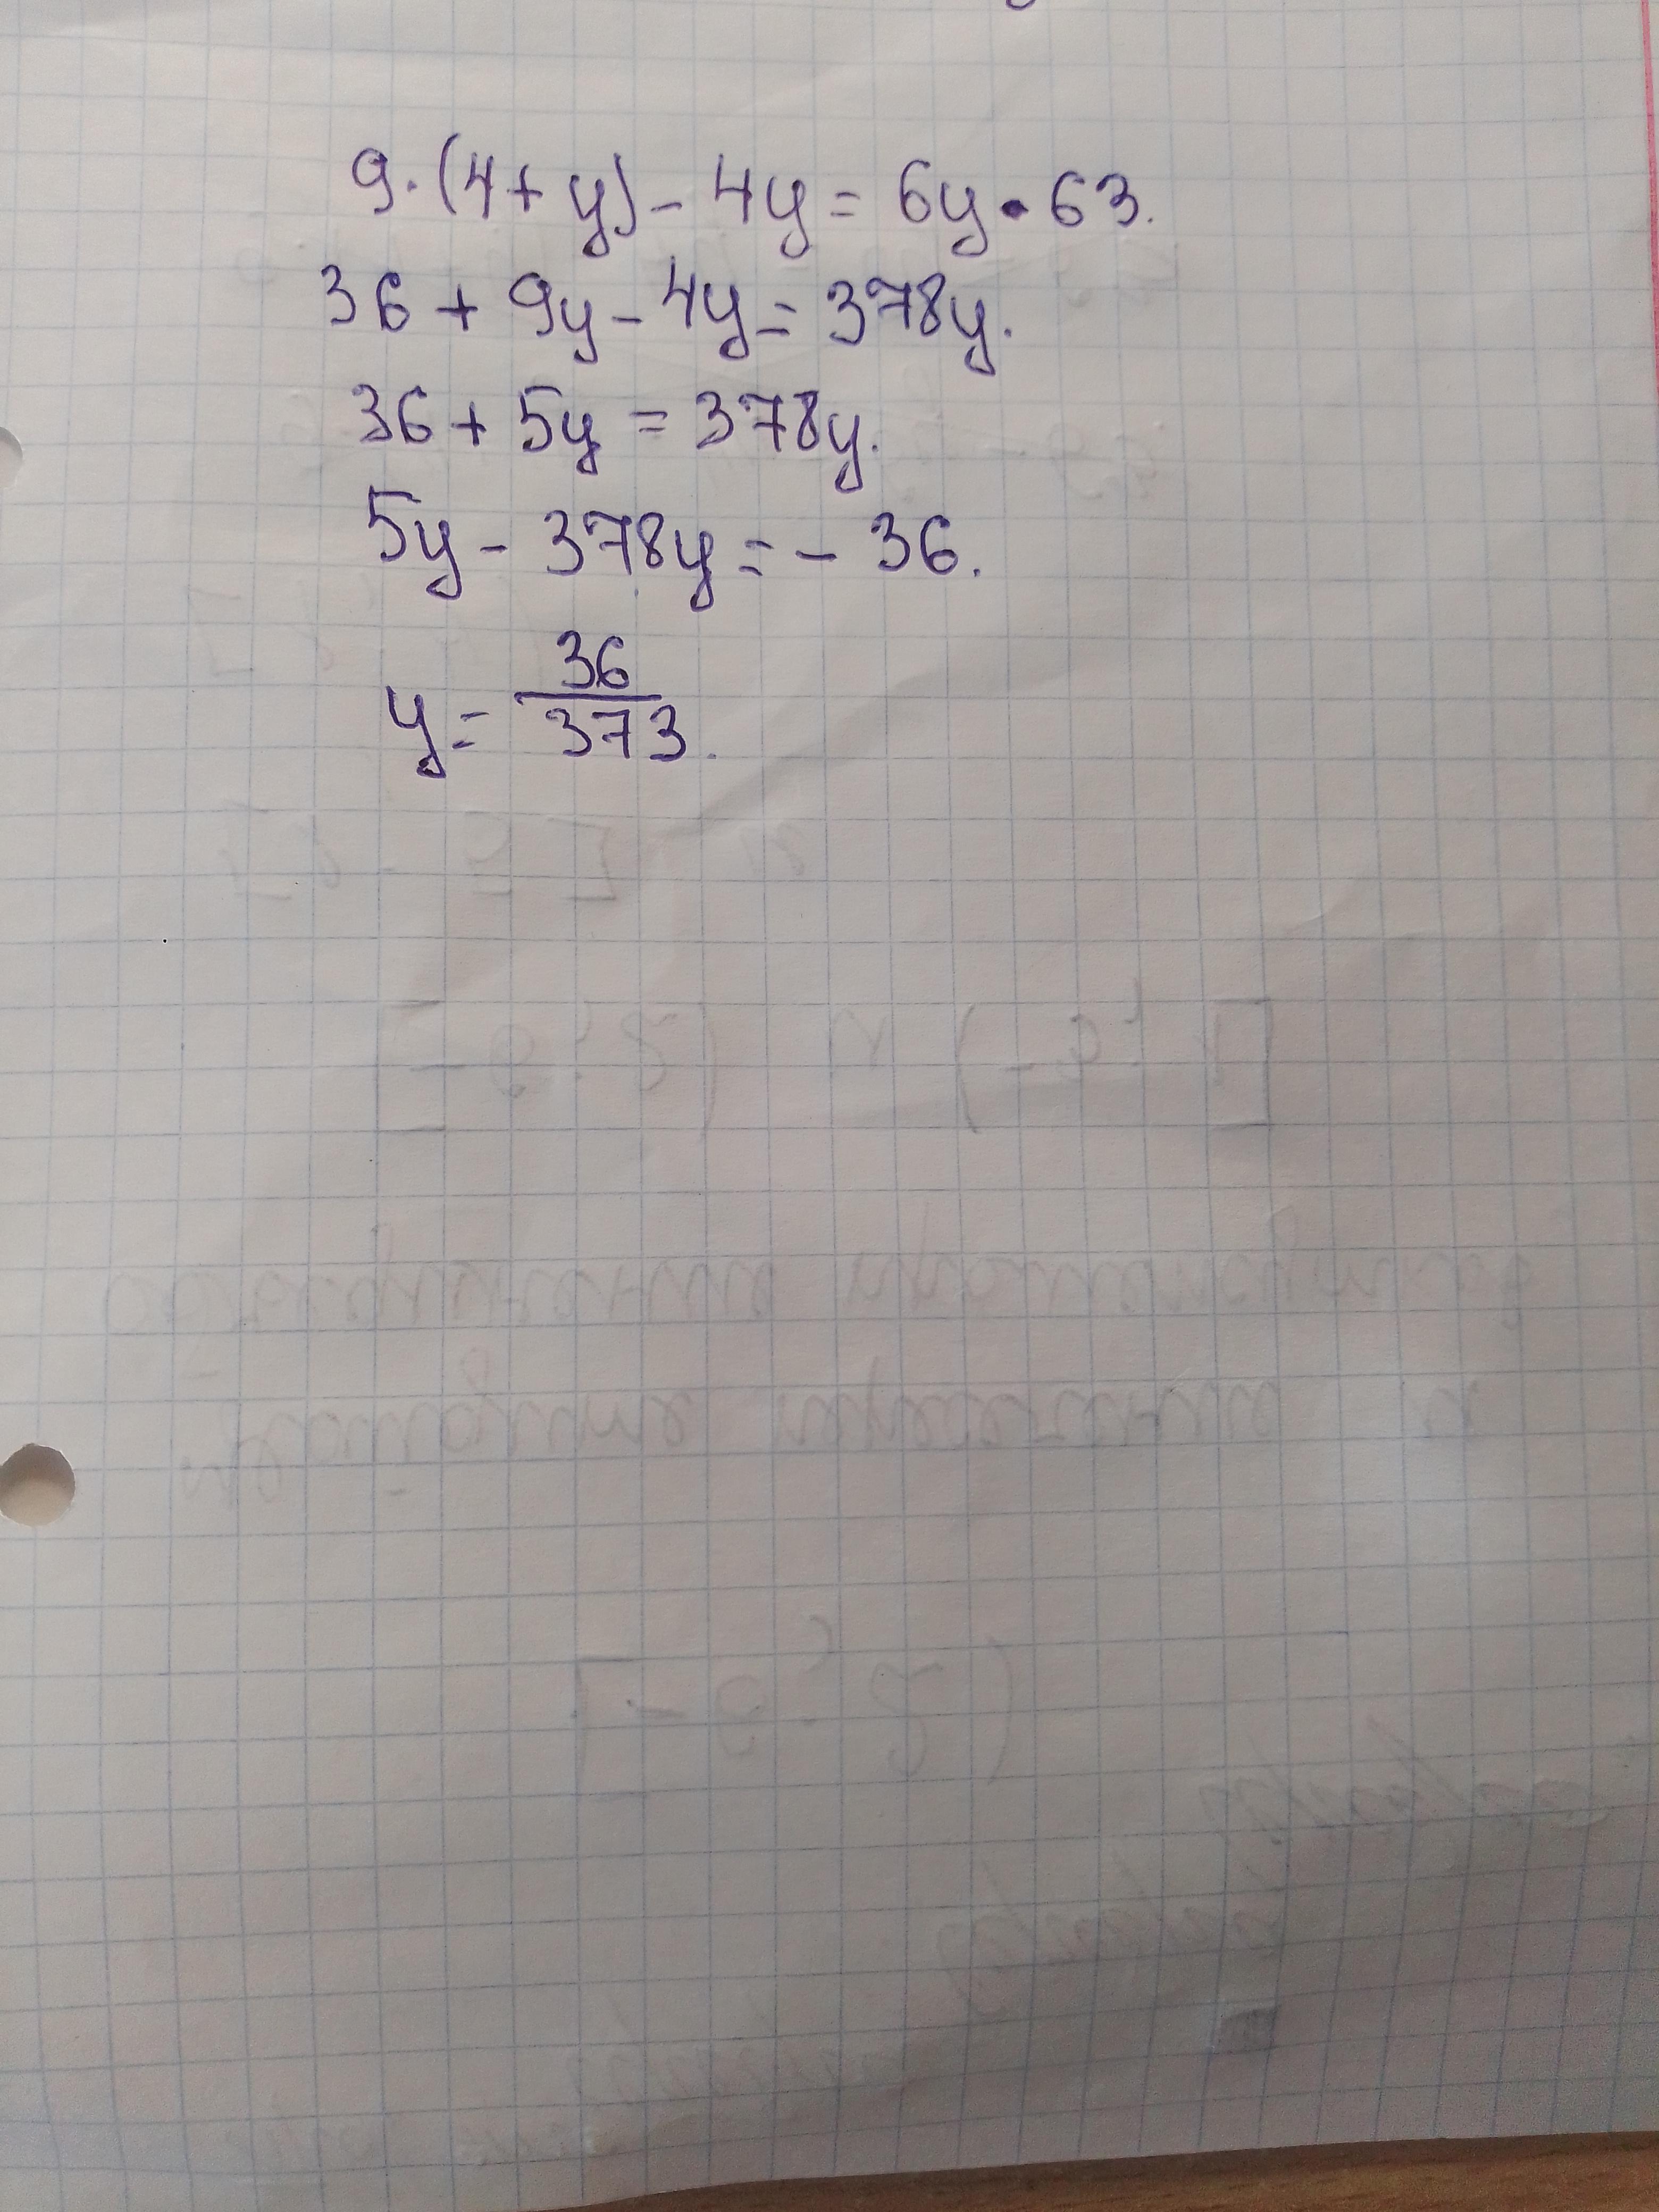 9·(4+y)-4y=6y·63.
36+9y-4y=378y.
36+5y=378y.
5y-378y=-36.
y=36/373.